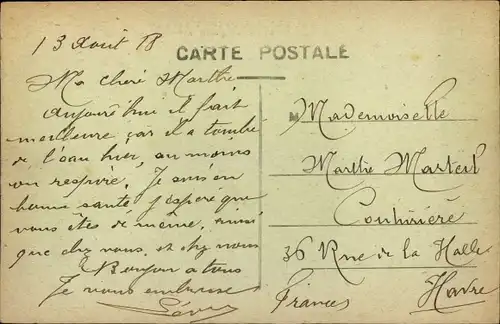 13 Août 18
CARTE POSTALE
Ma chère Marthe
Aujourd'hui il fait
meilleure car il a tombé
de l'eau hier, au moins
on respire. Je suis en
bonne santé j'espère que
vous êtes de même, ainsi
que chez vous, et chez nous
Bonjour a tous
Je vous embrasse
Mademoiselle
Marthe Marteil
Couturière
36 Rue de la Halle
Havre
France